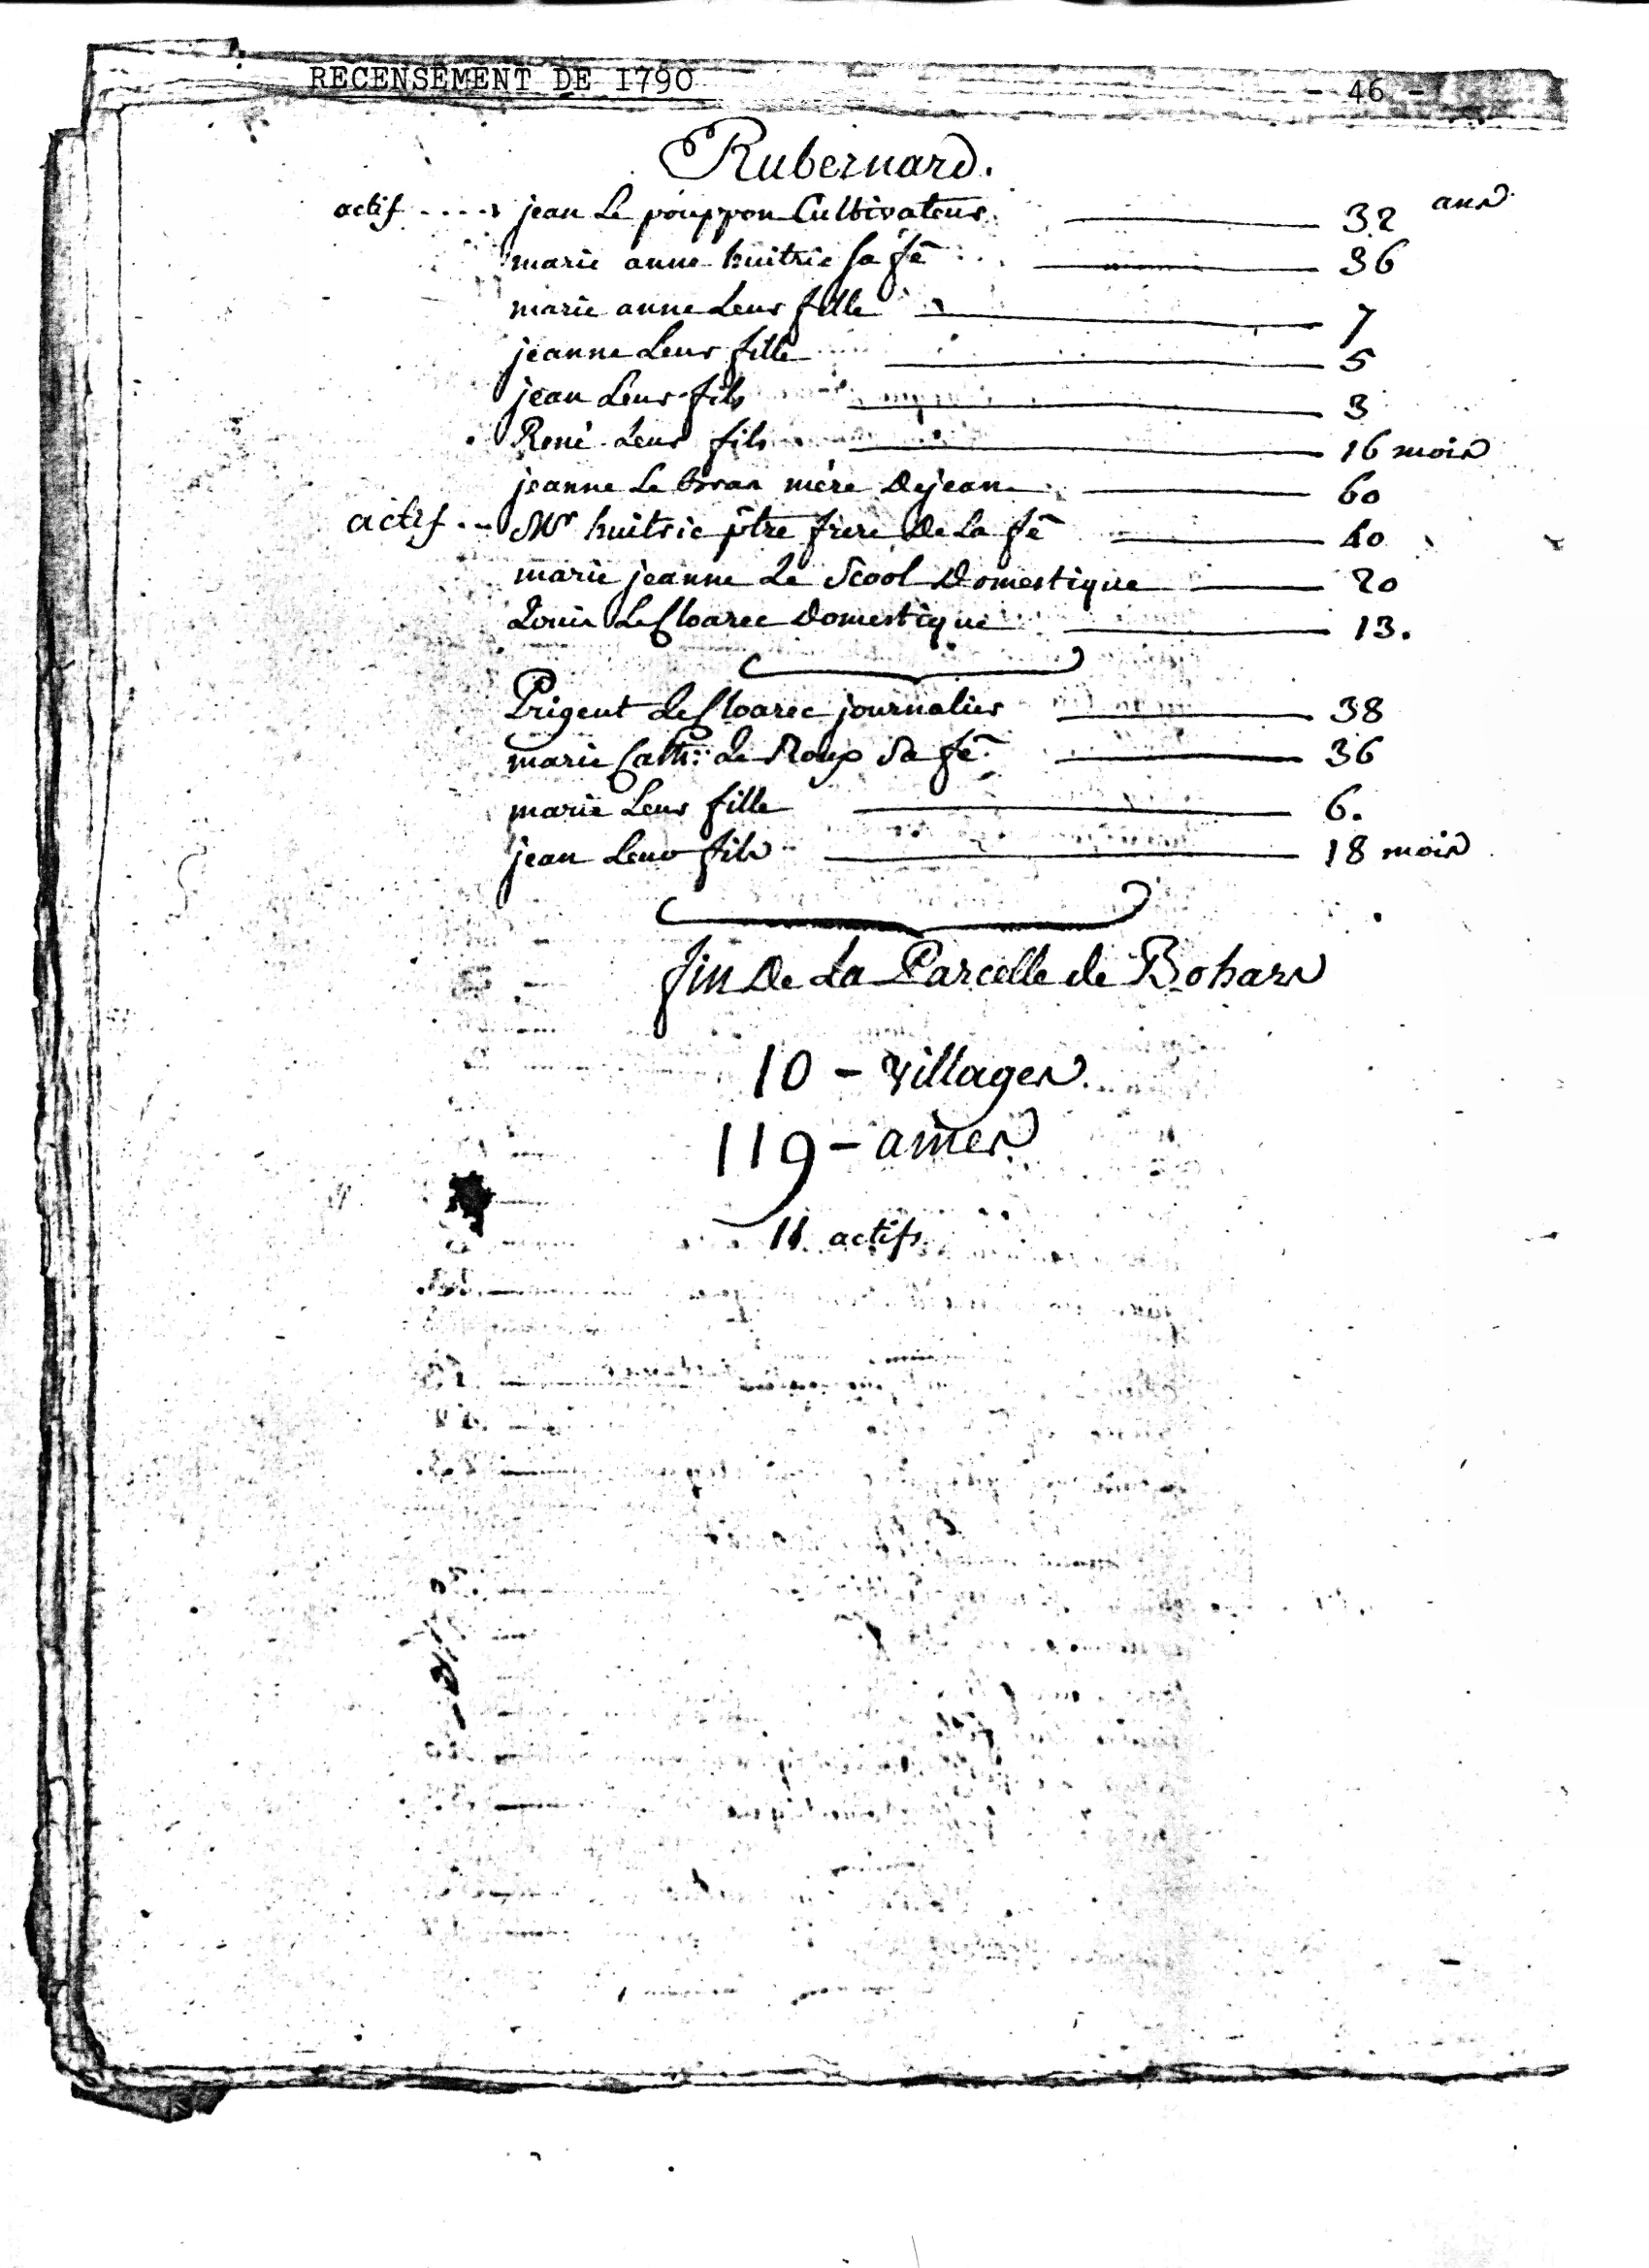 RECENSEMENT DE 1790 - 46 -
Rubernard.
actif .... jean Le pouppon Cultivateur. 32 ans
marie anne huitric sa fe 36
marie anne Leur fille 7
jeanne Leur fille 5
jean Leur fils 3
René Leur fils 16 mois
jeanne Le bras mère De jean 60
actif .. Mr huitric ptre frere De La fe 40
marie jeanne Le Scool Domestique 20
Louis Le Cloarec Domestique 13.
Prigent Le Cloarec journalier 38
marie Cath: Le Roux Sa fe 36
marie Leur fille 6.
jean Leur fils 18 mois
fin De La Parcelle de Bohars
10 - villages.
119 - ames
11 actifs.